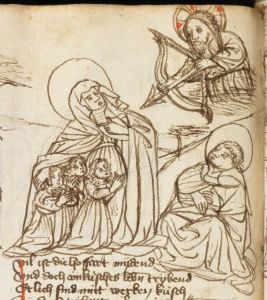 Vil ist die hoffart mydend
Vnd doch unküsches lebn trybend
Etlich sind mitt werken küsch